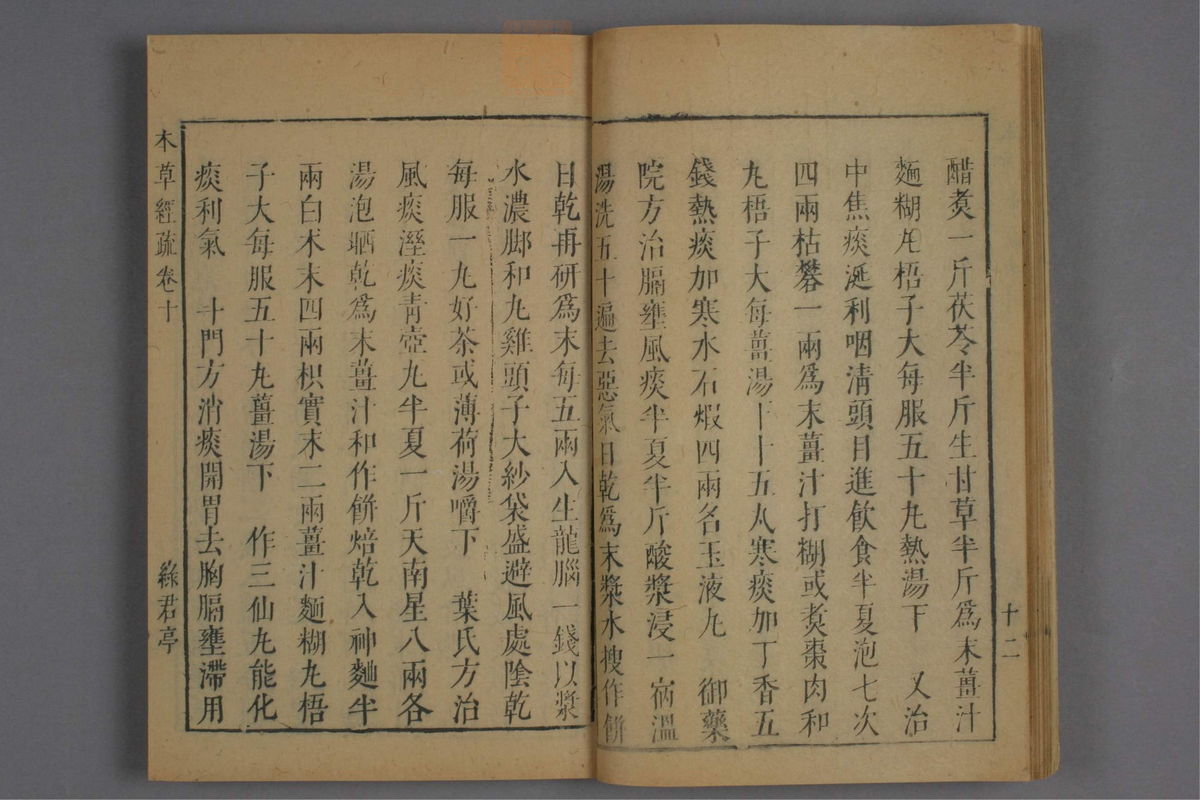 十二
醋煑一斤茯苓半斤生甘草半斤爲末薑汁
麵糊丸梧子大每服五十丸熱湯下　又治
中焦痰涎利咽清頭目進飲食半夏泡七次
四兩枯礬一兩爲末薑汁打糊或煑棗肉和
丸梧子大每薑湯下十五丸寒痰加丁香五
錢熱痰加寒水石煅四兩名玉液丸　御藥
院方治膈壅風痰半夏半斤酸漿浸一宿溫
湯洗五十遍去惡氣日乾爲末漿水搜作餅
日乾再研爲末每五兩入生龍腦一錢以漿
水濃脚和丸雞頭子大紗袋盛避風處陰乾
每服一丸好茶或薄荷湯嚼下　葉氏方治
風痰溼痰青壺丸半夏一斤天南星八兩各
湯泡晒乾爲末薑汁和作餅焙乾入神麯半
兩白术末四兩枳實末二兩薑汁麵糊丸梧
子大每服五十丸薑湯下　作三仙丸能化
痰利氣　斗門方消痰開胃去胸膈壅滯用
本草經疏卷十
綠君亭